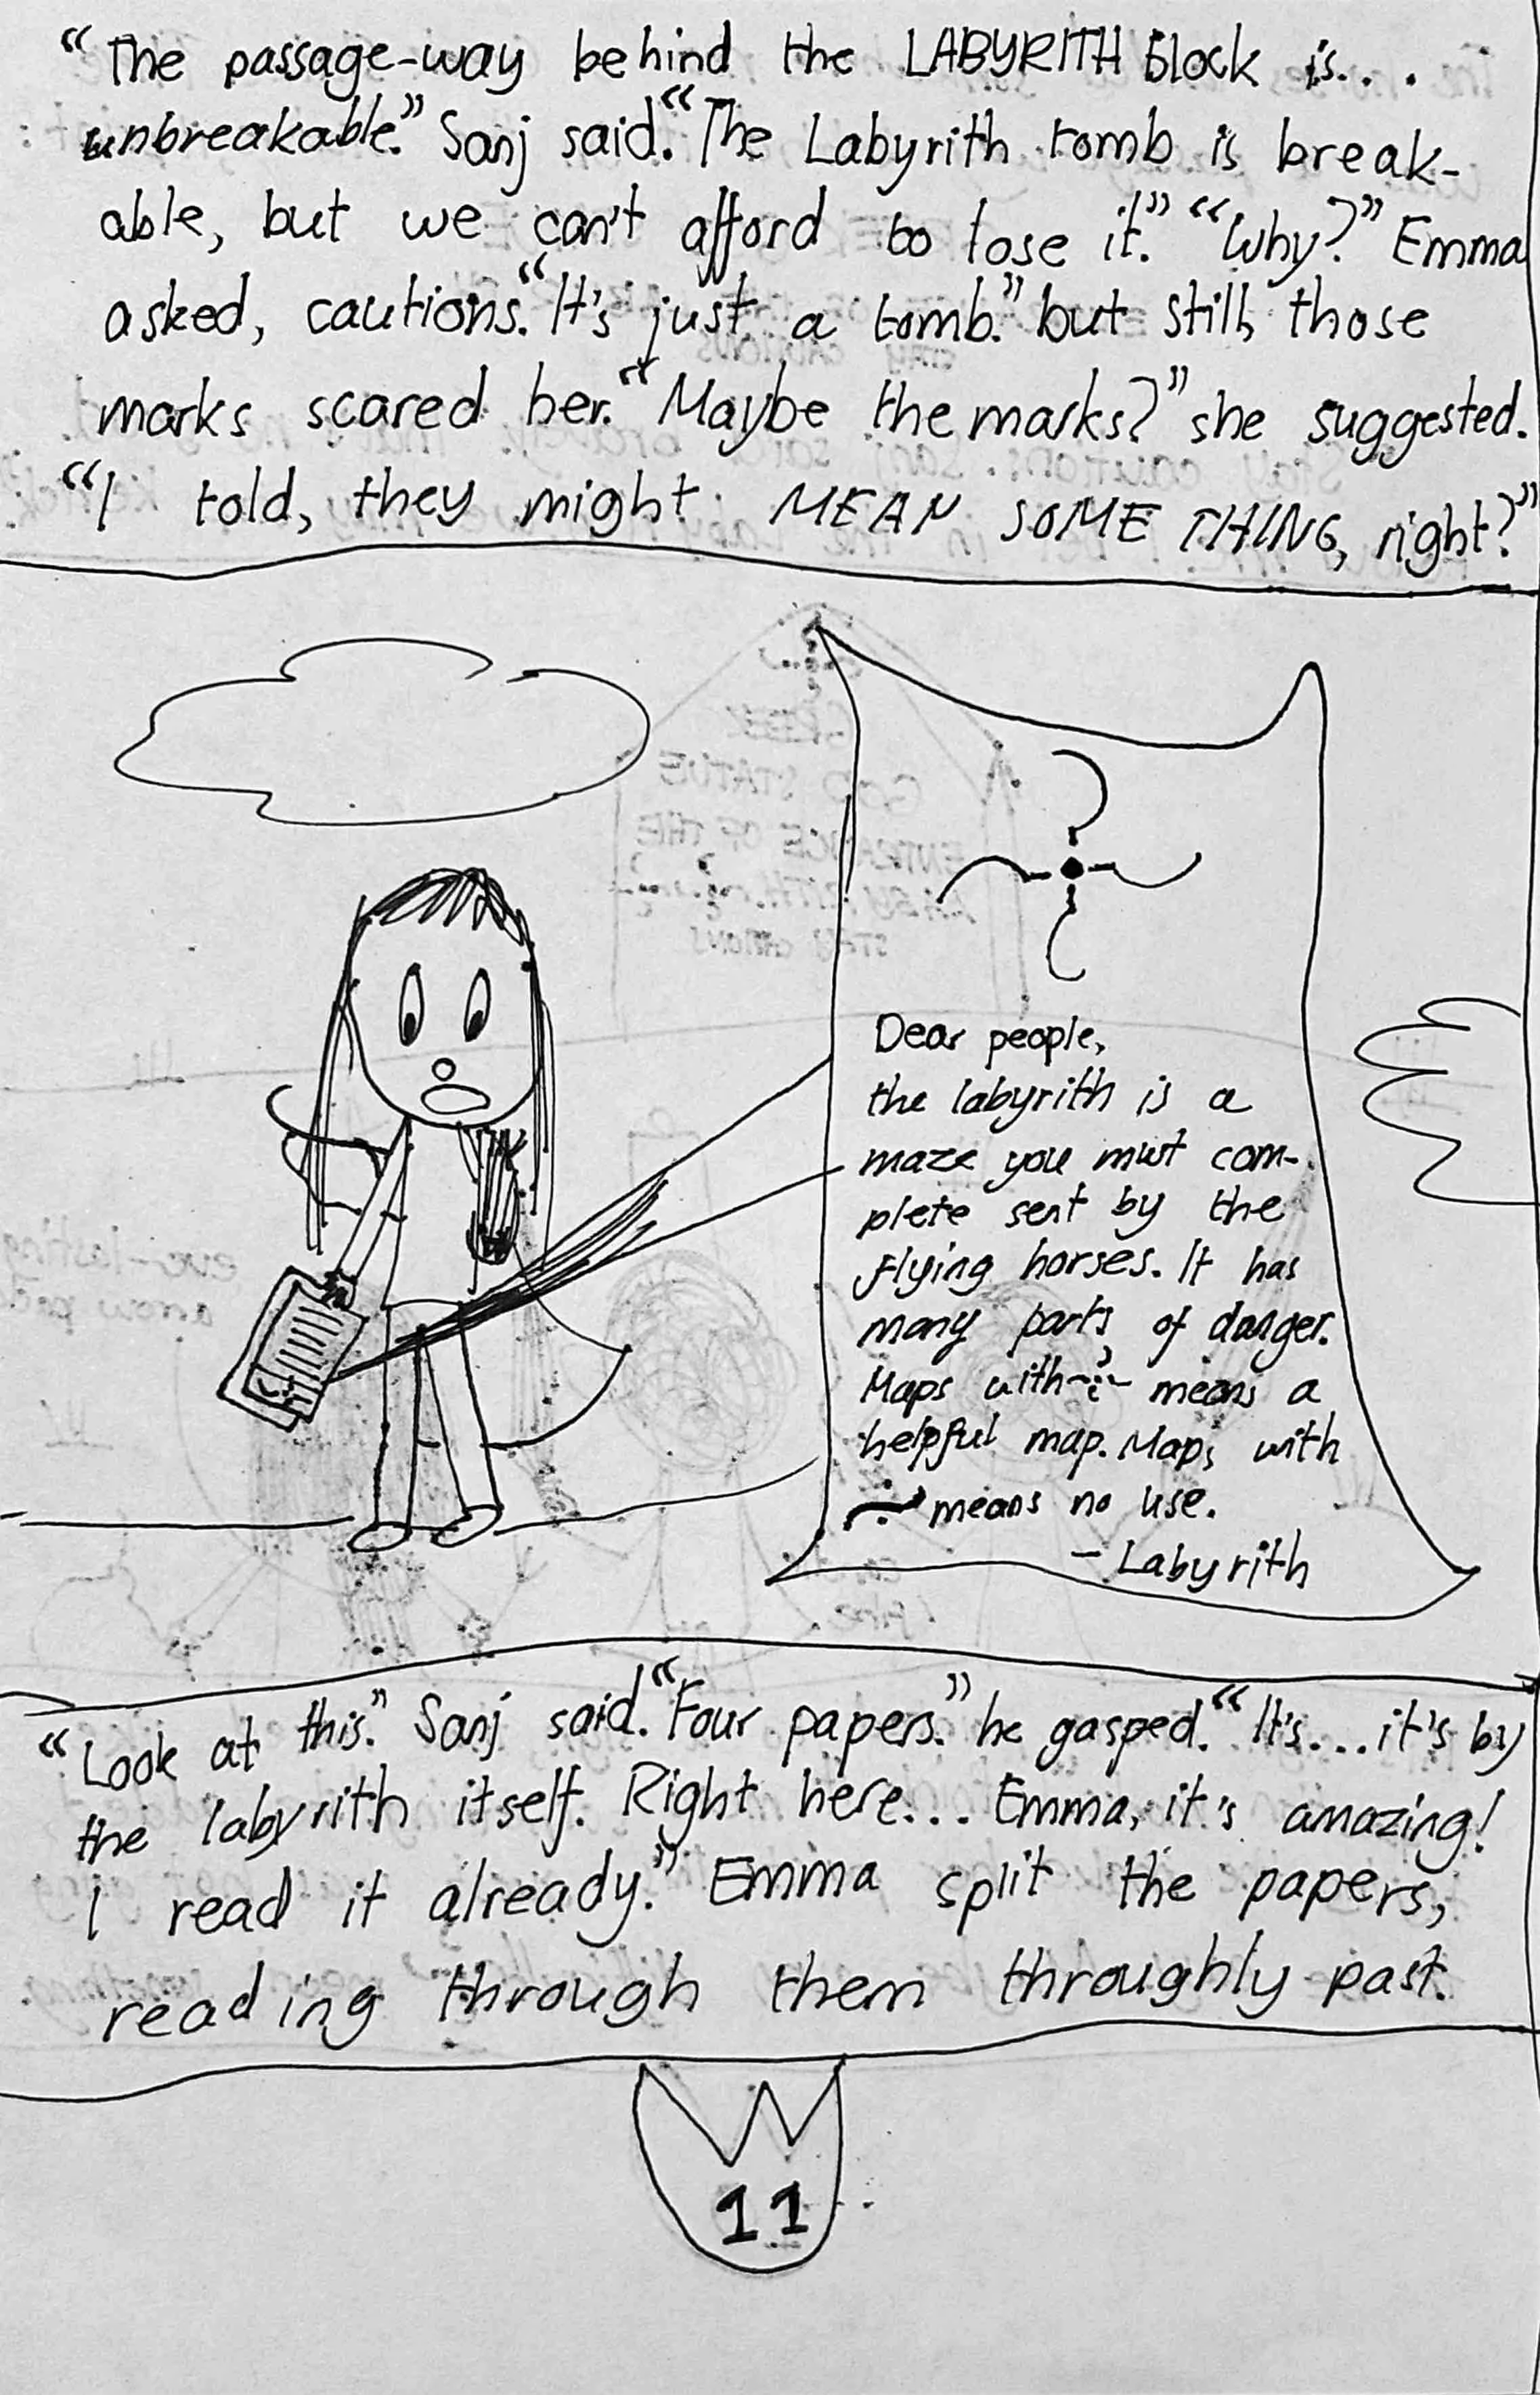 “The passage-way behind the LABYRITH block is...
unbreakable.” Sanj said. “The Labyrith tomb is break-
able, but we can't afford to lose it.” “Why?” Emma
asked, cautions. “It's just a tomb.” but still, those
marks scared her. “Maybe the marks?” she suggested.
“I told, they might MEAN SOME THING, right?”
Dear people,
the labyrith is a
maze you must com-
plete sent by the
flying horses. It has
many parts of danger.
Maps with means a
helpful map. Maps with
means no use.
- Labyrith
“Look at this.” Sanj said. “Four papers.” he gasped. “It's...it's by
the labyrith itself. Right here... Emma, it's amazing!
I read it already.” Emma split the papers,
reading through them throughly past.
11